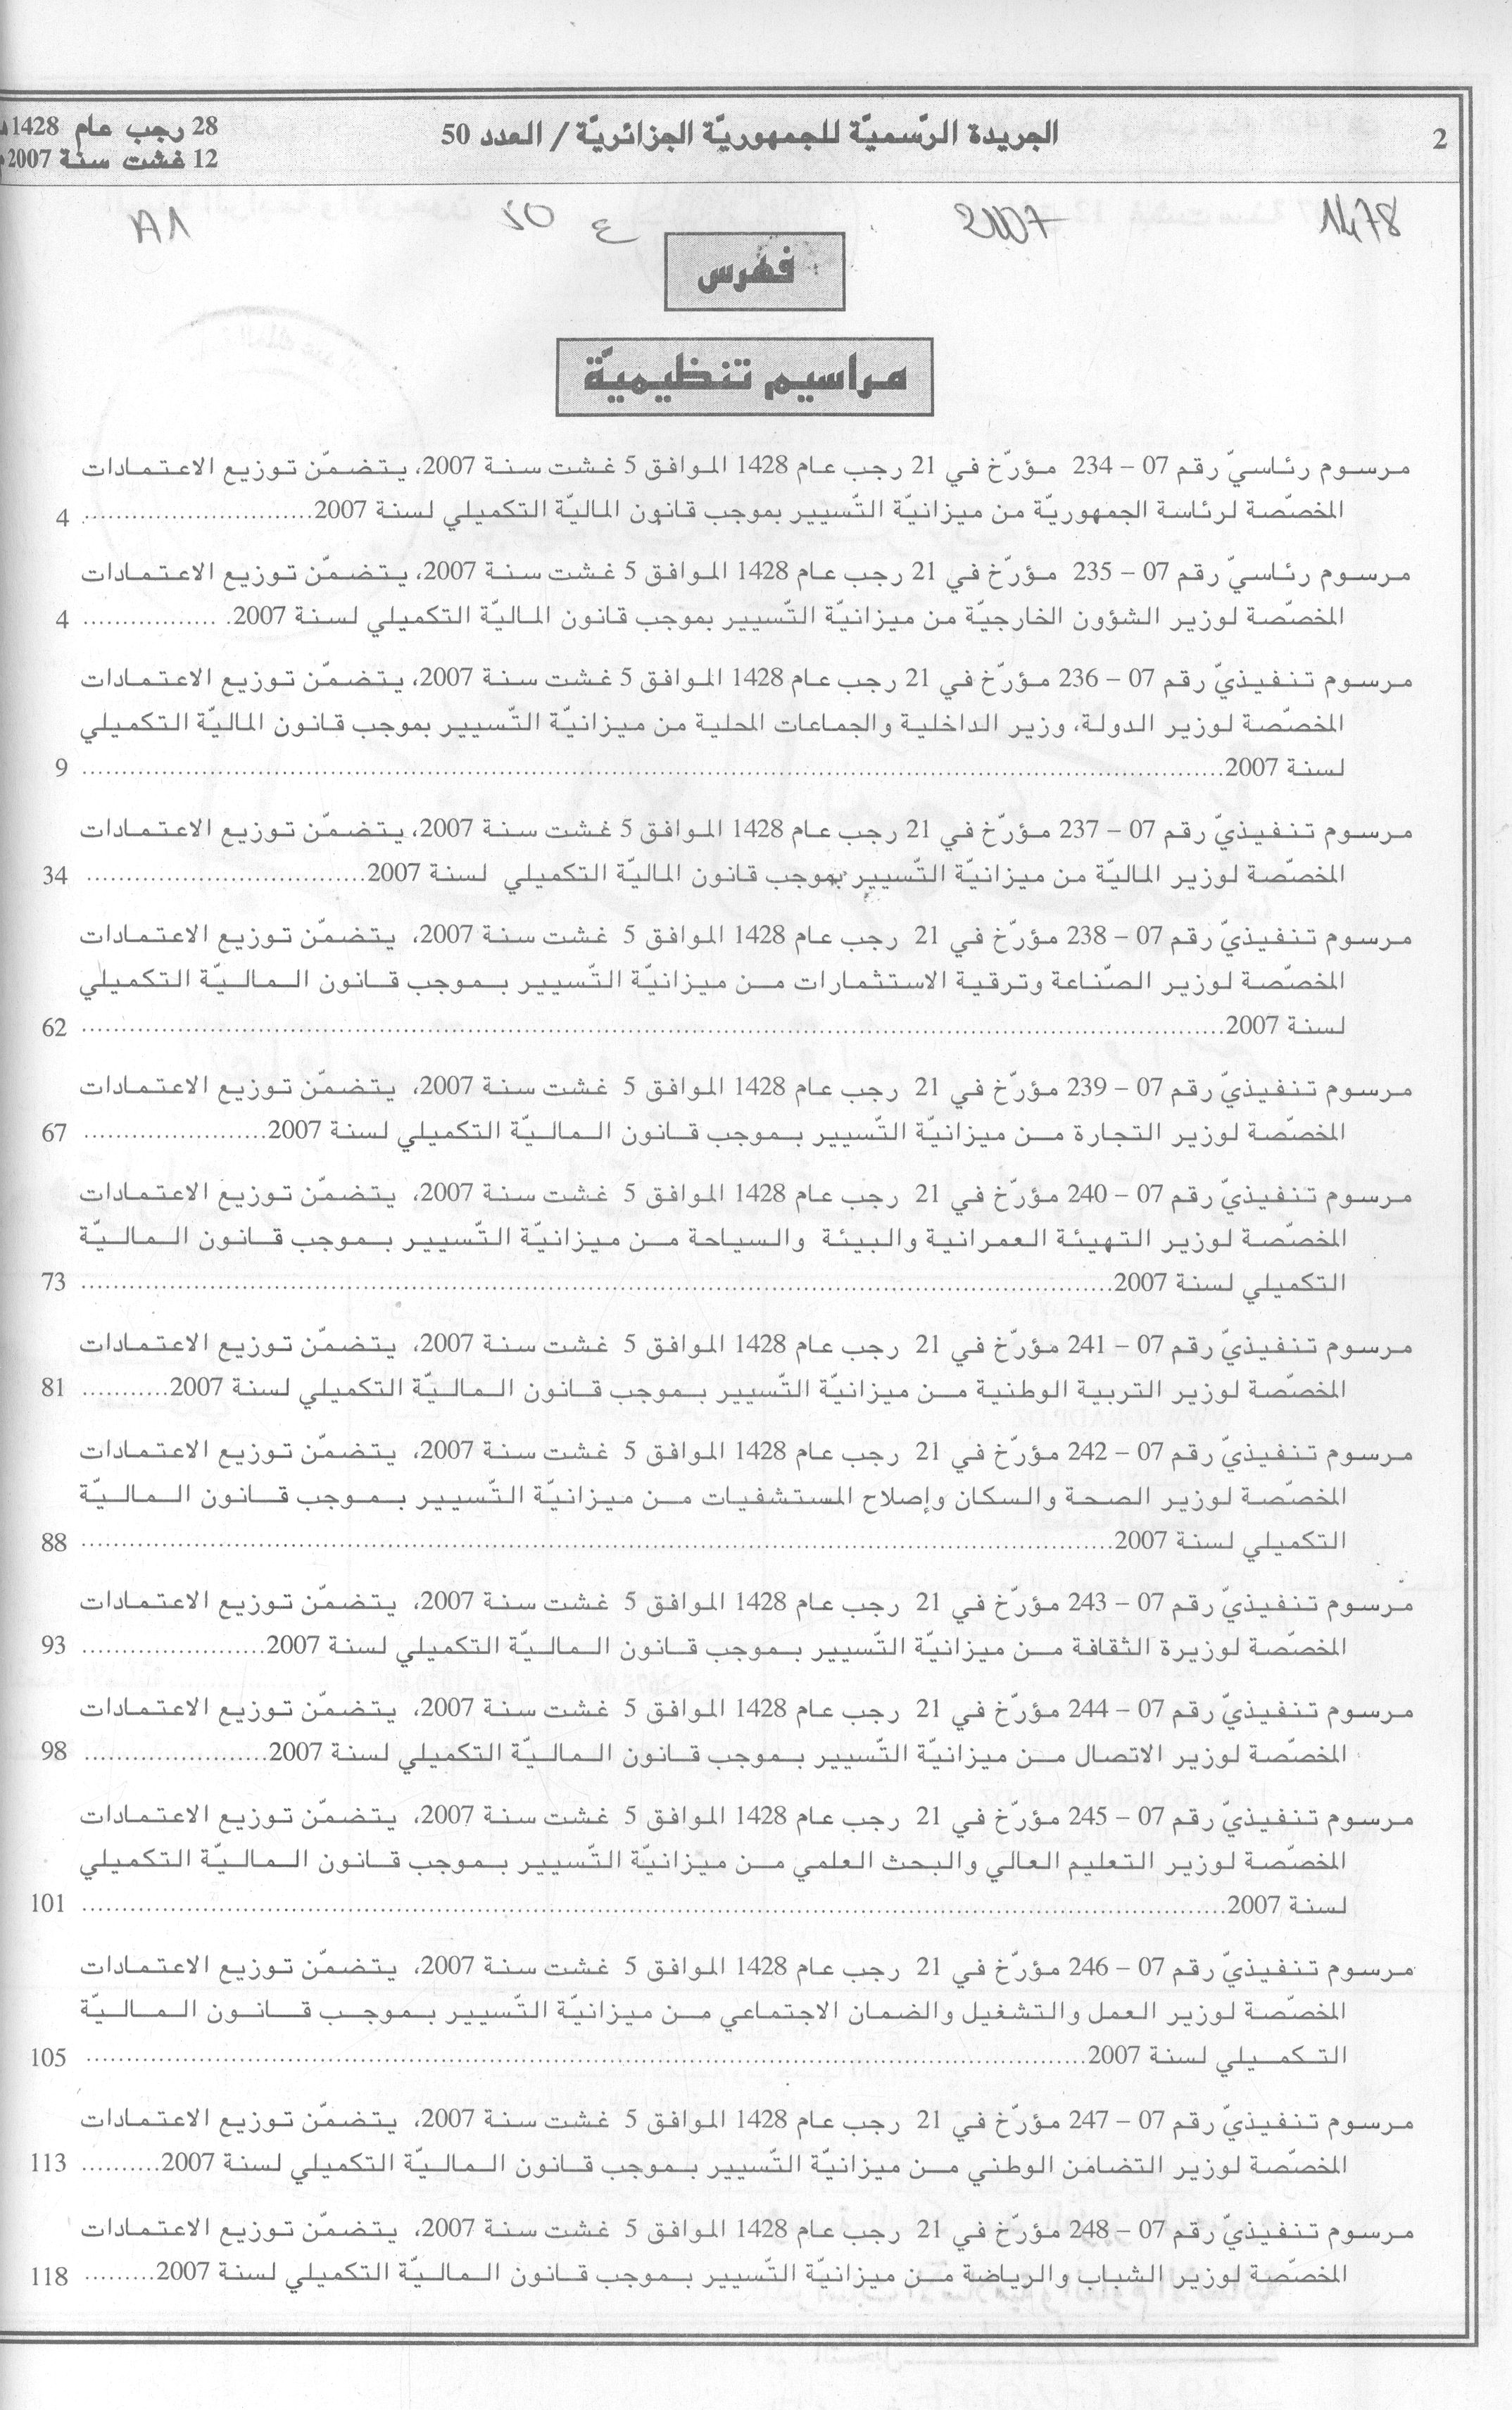 2
الجريدة الرّسميّة للجمهوريّة الجزائريّة / العدد 50
28 رجب عام 1428 هـ
12 غشت سنة 2007 م
1478 2007 ع 50 A1
فهرس
مراسيم تنظيميّة
مرسوم رئاسيّ رقم 07 – 234 مؤرّخ في 21 رجب عام 1428 الموافق 5 غشت سنة 2007، يتضمّن توزيع الاعتمادات
المخصّصة لرئاسة الجمهوريّة من ميزانيّة التّسيير بموجب قانون الماليّة التكميلي لسنة 2007.............................. 4
مرسوم رئاسيّ رقم 07 – 235 مؤرّخ في 21 رجب عام 1428 الموافق 5 غشت سنة 2007، يتضمّن توزيع الاعتمادات
المخصّصة لوزير الشؤون الخارجيّة من ميزانيّة التّسيير بموجب قانون الماليّة التكميلي لسنة 2007. ................. 4
مرسوم تنفيذيّ رقم 07 – 236 مؤرّخ في 21 رجب عام 1428 الموافق 5 غشت سنة 2007، يتضمّن توزيع الاعتمادات
المخصّصة لوزير الدولة، وزير الداخلية والجماعات المحلية من ميزانيّة التّسيير بموجب قانون الماليّة التكميلي
لسنة 2007.............................. 9
مرسوم تنفيذيّ رقم 07 – 237 مؤرّخ في 21 رجب عام 1428 الموافق 5 غشت سنة 2007، يتضمّن توزيع الاعتمادات
المخصّصة لوزير الماليّة من ميزانيّة التّسيير بموجب قانون الماليّة التكميلي لسنة 2007.............................. 34
مرسوم تنفيذيّ رقم 07 – 238 مؤرّخ في 21 رجب عام 1428 الموافق 5 غشت سنة 2007، يتضمّن توزيع الاعتمادات
المخصّصة لوزير الصّناعة وترقية الاستثمارات من ميزانيّة التّسيير بموجب قانون الماليّة التكميلي
لسنة 2007.............................. 62
مرسوم تنفيذيّ رقم 07 – 239 مؤرّخ في 21 رجب عام 1428 الموافق 5 غشت سنة 2007، يتضمّن توزيع الاعتمادات
المخصّصة لوزير التجارة من ميزانيّة التّسيير بموجب قانون الماليّة التكميلي لسنة 2007....................... 67
مرسوم تنفيذيّ رقم 07 – 240 مؤرّخ في 21 رجب عام 1428 الموافق 5 غشت سنة 2007، يتضمّن توزيع الاعتمادات
المخصّصة لوزير التهيئة العمرانية والبيئة والسياحة من ميزانيّة التّسيير بموجب قانون الماليّة
التكميلي لسنة 2007.............................. 73
مرسوم تنفيذيّ رقم 07 – 241 مؤرّخ في 21 رجب عام 1428 الموافق 5 غشت سنة 2007، يتضمّن توزيع الاعتمادات
المخصّصة لوزير التربية الوطنية من ميزانيّة التّسيير بموجب قانون الماليّة التكميلي لسنة 2007........... 81
مرسوم تنفيذيّ رقم 07 – 242 مؤرّخ في 21 رجب عام 1428 الموافق 5 غشت سنة 2007، يتضمّن توزيع الاعتمادات
المخصّصة لوزير الصحة والسكان وإصلاح المستشفيات من ميزانيّة التّسيير بموجب قانون الماليّة
التكميلي لسنة 2007.............................. 88
مرسوم تنفيذيّ رقم 07 – 243 مؤرّخ في 21 رجب عام 1428 الموافق 5 غشت سنة 2007، يتضمّن توزيع الاعتمادات
المخصّصة لوزيرة الثقافة من ميزانيّة التّسيير بموجب قانون الماليّة التكميلي لسنة 2007....................... 93
مرسوم تنفيذيّ رقم 07 – 244 مؤرّخ في 21 رجب عام 1428 الموافق 5 غشت سنة 2007، يتضمّن توزيع الاعتمادات
المخصّصة لوزير الاتصال من ميزانيّة التّسيير بموجب قانون الماليّة التكميلي لسنة 2007....................... 98
مرسوم تنفيذيّ رقم 07 – 245 مؤرّخ في 21 رجب عام 1428 الموافق 5 غشت سنة 2007، يتضمّن توزيع الاعتمادات
المخصّصة لوزير التعليم العالي والبحث العلمي من ميزانيّة التّسيير بموجب قانون الماليّة التكميلي
لسنة 2007.............................. 101
مرسوم تنفيذيّ رقم 07 – 246 مؤرّخ في 21 رجب عام 1428 الموافق 5 غشت سنة 2007، يتضمّن توزيع الاعتمادات
المخصّصة لوزير العمل والتشغيل والضمان الاجتماعي من ميزانيّة التّسيير بموجب قانون الماليّة
التكميلي لسنة 2007.............................. 105
مرسوم تنفيذيّ رقم 07 – 247 مؤرّخ في 21 رجب عام 1428 الموافق 5 غشت سنة 2007، يتضمّن توزيع الاعتمادات
المخصّصة لوزير التضامن الوطني من ميزانيّة التّسيير بموجب قانون الماليّة التكميلي لسنة 2007.......... 113
مرسوم تنفيذيّ رقم 07 – 248 مؤرّخ في 21 رجب عام 1428 الموافق 5 غشت سنة 2007، يتضمّن توزيع الاعتمادات
المخصّصة لوزير الشباب والرياضة من ميزانيّة التّسيير بموجب قانون الماليّة التكميلي لسنة 2007......... 118